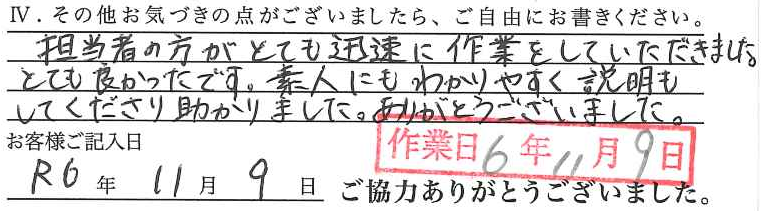 Ⅳ．その他お気づきの点がございましたら、ご自由にお書きください。
担当者の方がとても迅速に作業をしていただきました。
とても良かったです。素人にもわかりやすく説明も
してくださり助かりました。ありがとうございました。
お客様ご記入日
作業日6年11月9日
R6年11月9日
ご協力ありがとうございました。